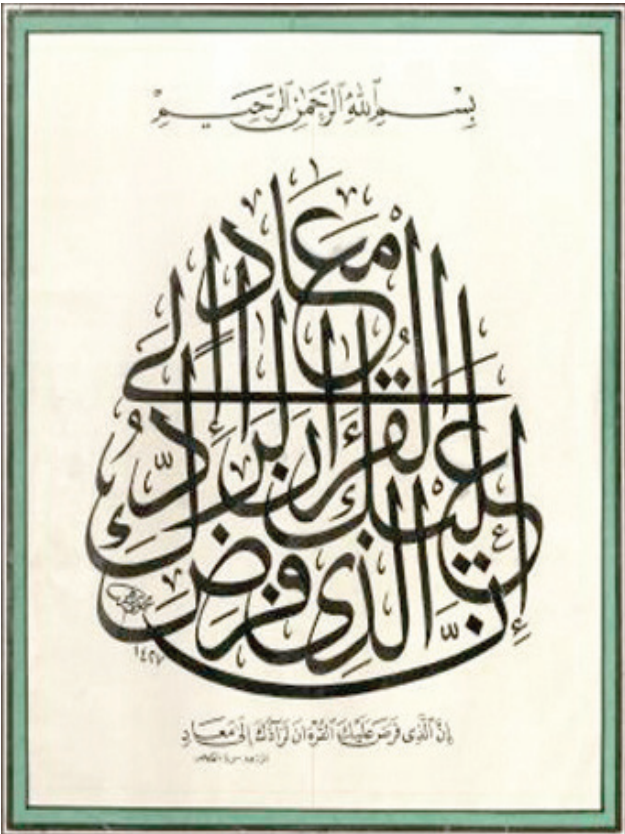 بِسْمِ ٱللَّهِ ٱلرَّحْمَٰنِ ٱلرَّحِيمِ
إِنَّ ٱلَّذِى فَرَضَ عَلَيْكَ ٱلْقُرْءَانَ لَرَآدُّكَ إِلَىٰ مَعَادٍ
١٤٢٧
إِنَّ ٱلَّذِى فَرَضَ عَلَيْكَ ٱلْقُرْءَانَ لَرَآدُّكَ إِلَىٰ مَعَادٍ